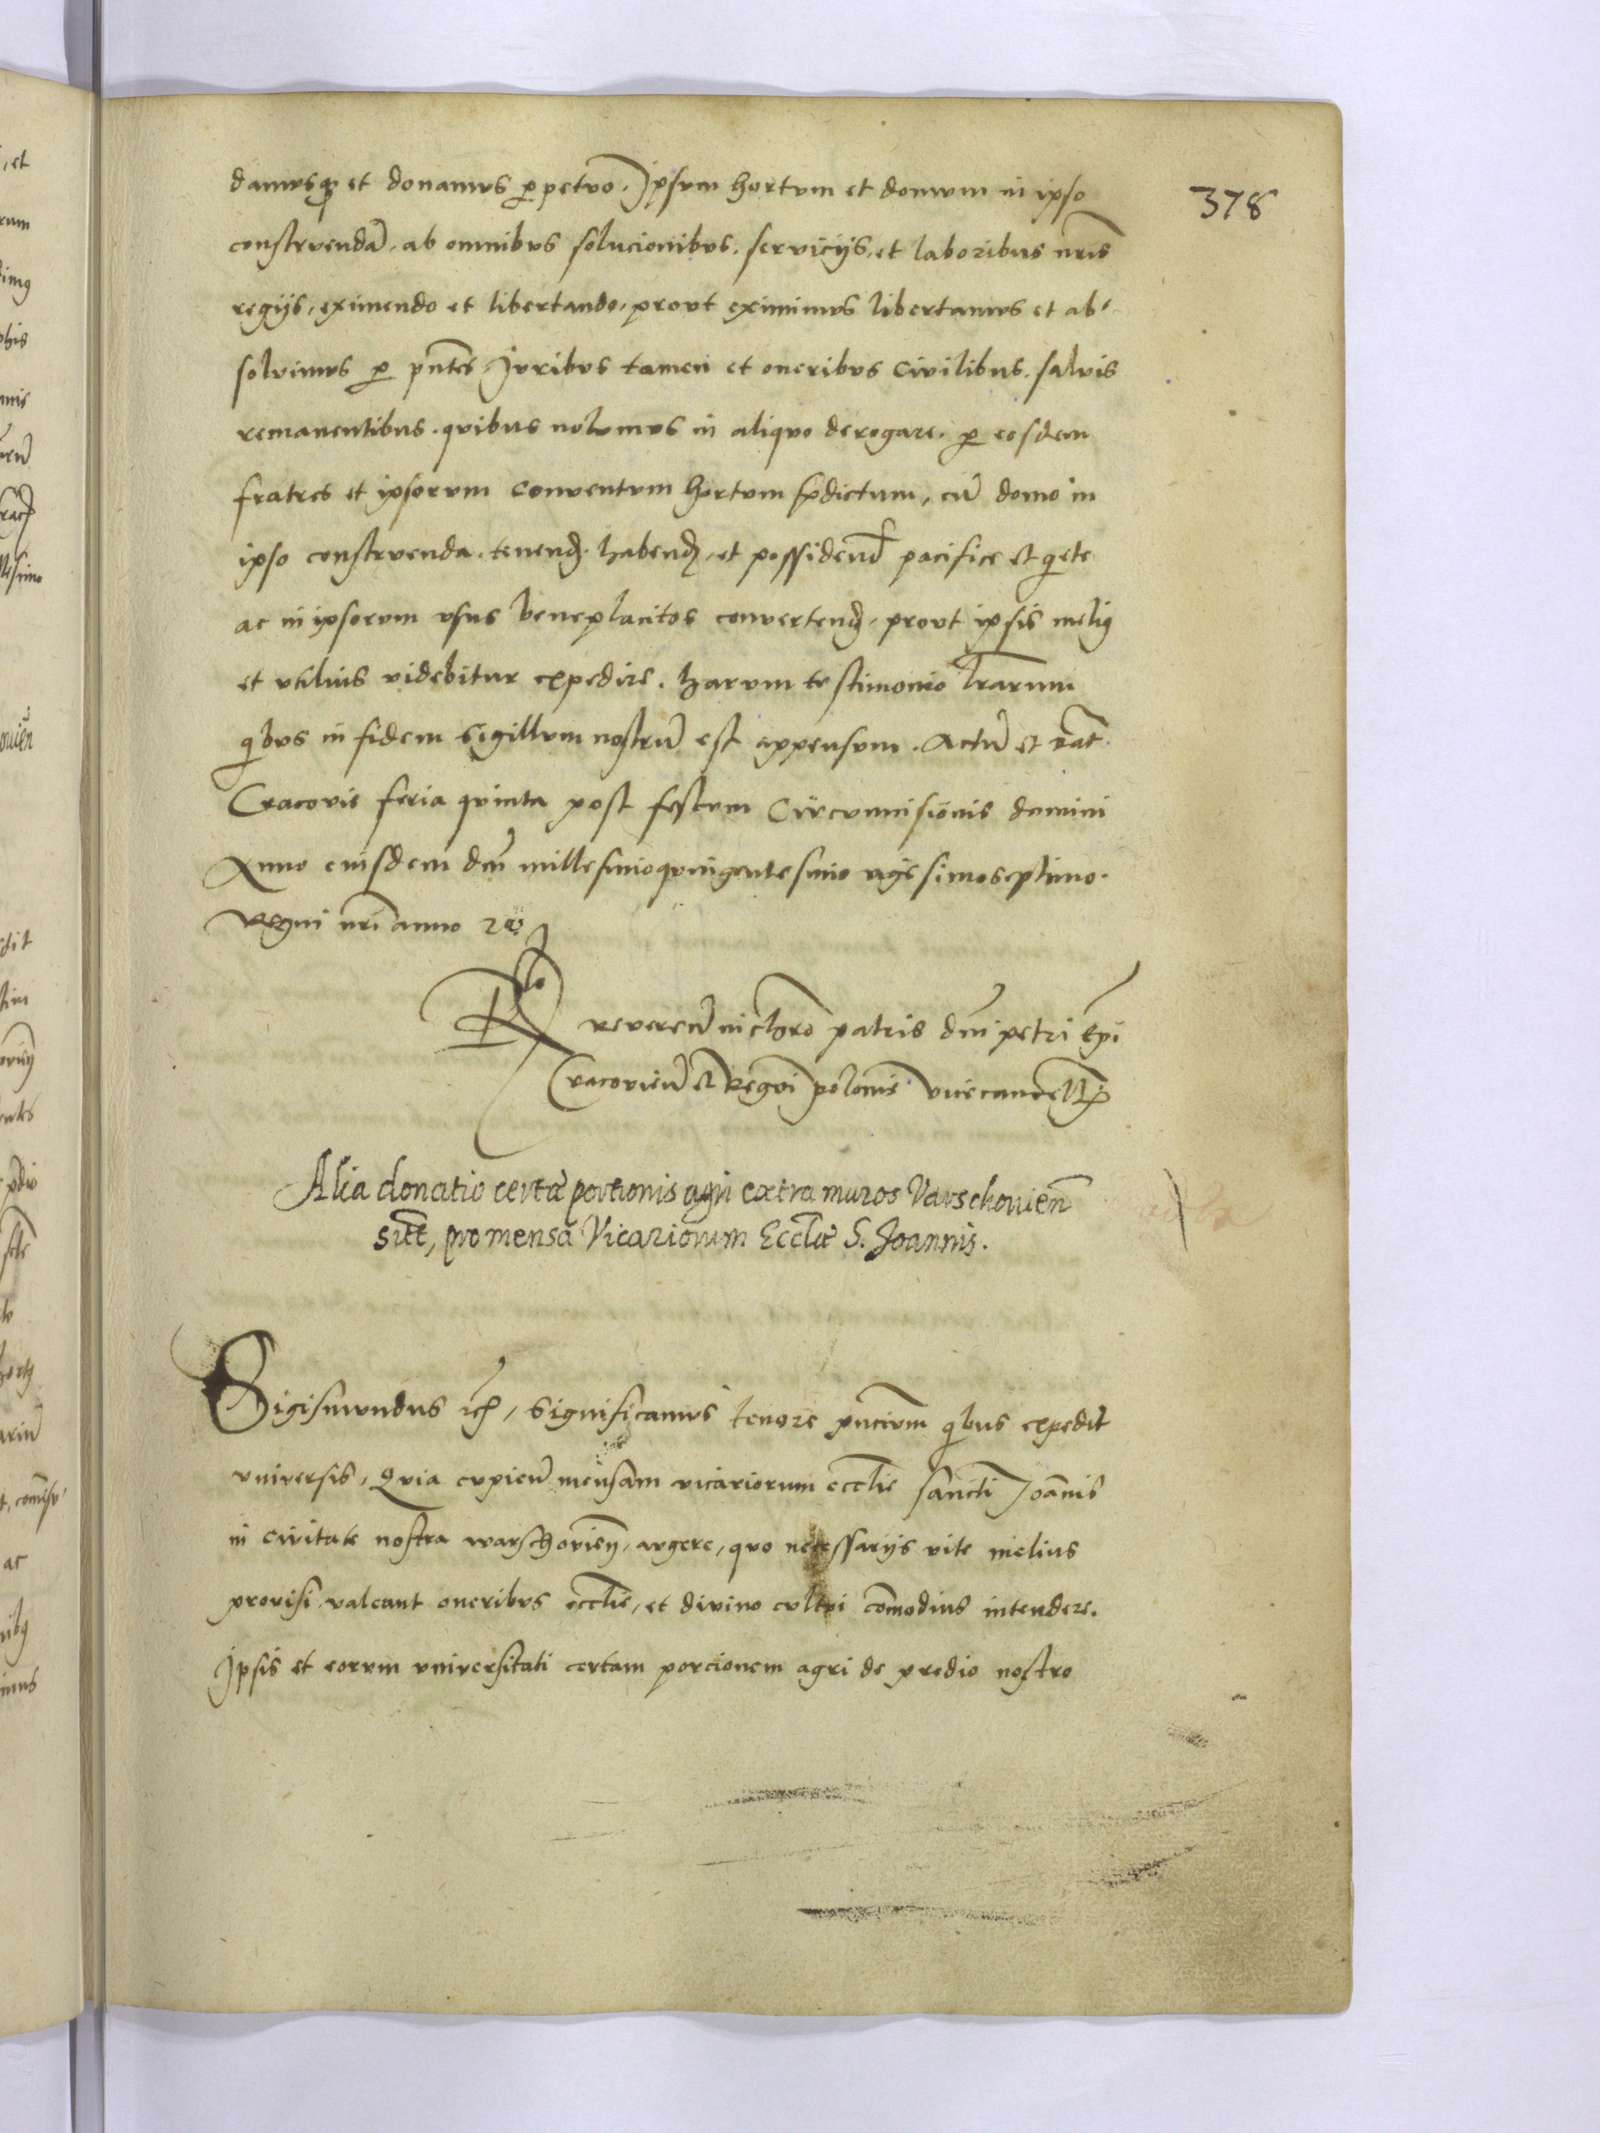 378
damusq3 et donamus ꝑpetuo. Ipsum hortum et domum in ipso
construendā. ab omnibus solucionibus. servicijs. et laboribus nr̄is
regijs, eximendo et libertando, prout eximimus libertamus et ab-
solvimus ꝑ pn̄tes Iuribus tamen et oneribus civilibus. salvis
remanentibus. quibus nolumus in aliquo derogare. ꝑ eosdem
fratres et ipsorum conventum hortum p̄dictum, cū domo in
ipso construenda. tenend. habend. et possidend pacifice et q̄ete
ac in ipsorum usus beneplacitos convertend, prout ipsis meli9
et utilius videbitur expedire. harum testimonio lr̄arum
qbus in fidem sigillum nostrū est appensum. Actū et Dat
Cracovie feria quinta post festum Circumcisionis domini
Anno eiusdem dn̄i millesimoquingentesimo vigesimoseptimo.
Regni nr̄i anno 20
Rlo
reveren̄ in chr̄o patris dn̄i petri Ep̄i
Cracovien̄ et Regni polonie vicecancell
Alia donatio certæ portionis agri extra muros Varschovien̄
sitæ, pro mensa Vicariorum Eccl̄iæ S. Joannis.
Sigismundus rc̄, Significamus tenore pn̄cium qbus expedit
universis, Quia cupien̄ mensam vicariorum eccl̄ie sancti Joānis
in civitate nostra warschovien̄, augere, quo necessarijs vite melius
provisi valeant oneribus eccl̄ie, et divino cultui com̄odius intendere.
Ipsis et eorum universitati certam porcionem agri de predio nostro